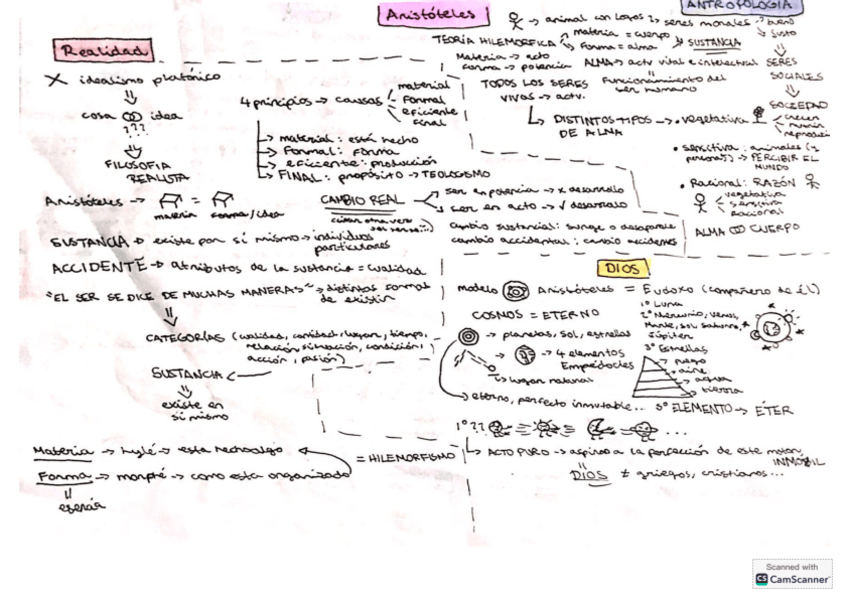 Aristóteles
Realidad
X idealismo platónico
cosa idea
???
FILOSOFIA
REALISTA
Aristóteles → =
materia forma/idea
SUSTANCIA → existe por sí mismo → individuos
particulares
ACCIDENTE → atributos de la sustancia = cualidad
"EL SER SE DICE DE MUCHAS MANERAS" → distintas formas
de existir
CATEGORÍAS (cualidad, cantidad, lugar, tiempo,
relación, situación, condición,
acción, pasión)
SUSTANCIA
existe en
sí mismo
Materia → hylé → esta hecho algo
Forma → morphé → como esta organizado
= HILEMORFISMO
esencia
4 principios → causas
material
formal
eficiente
final
→ material: está hecho
→ Formal: forma
→ eficiente: producción
→ FINAL: propósito → TEOLOGISMO
CAMBIO REAL
ser en potencia → x desarrollo
ser en acto → √ desarrollo
cambio sustancial: surge o desaparece
cambio accidental: cambio accidentes
ANTROPOLOGIA
→ animal con logos → seres morales
bueno
justo
TEORÍA HILEMORFICA
materia = cuerpo
Forma = alma
SUSTANCIA
Materia → acto
forma → potencia
ALMA → actv vital e intelectual
SERES
SOCIALES
TODOS LOS SERES
VIVOS → actv.
Funcionamiento del
ser humano
SOCIEDAD
→ DISTINTOS TIPOS → • vegetativa
DE ALMA
crecen
reproducir
• sensitiva: animales (y
personas) → PERCIBIR EL
MUNDO
• Racional: RAZÓN
vegetativa
sensitiva
racional
ALMA CUERPO
DIOS
modelo Aristóteles = Eudoxo (compañero de él)
COSMOS = ETERNO
→ planetas, sol, estrellas
→ 4 elementos
Empédocles
→ lugar natural
1º Luna
2º Mercurio, venus,
Marte, sol saturno,
Júpiter
3º Estrellas
fuego
aire
agua
tierra
→ eterno, perfecto inmutable... 5º ELEMENTO → ÉTER
1º ?? ...
→ ACTO PURO → aspiro a la perfección de este motor
INMÓVIL
DIOS ≠ griegos, cristianos...
Scanned with
CS CamScanner